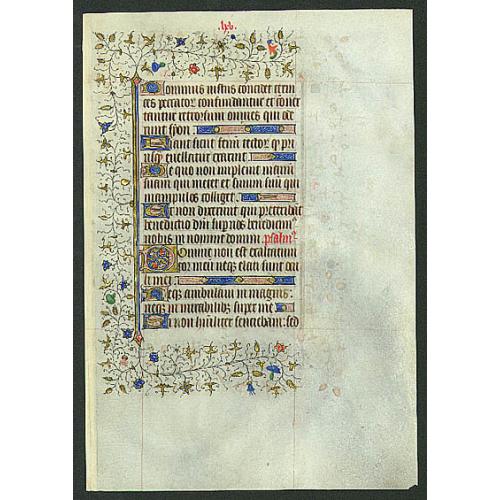 Dominus iustus concidet cervi
ces peccatoꝝ confundantur et conver
tantur retrorsum omnes qui ode
runt syon.
Fiant sicut fenū tectoꝝ qd pri
usqͣ evellatur exaruit.
De quo non implevit manū
suam qui metet et sinum suū qui
manipulos colliget.
Et non dixerunt qui preteribāt
benedictio dn̄i super vos benedixim9
vobis in nomine domini. psalm9
Domine non est exaltatum
cor meū neqꝫ elati sunt ocu
li mei.
Neqꝫ ambulavi in magnis:
neqꝫ in mirabilibus super me
Si non hūiliter sentiebam: sed